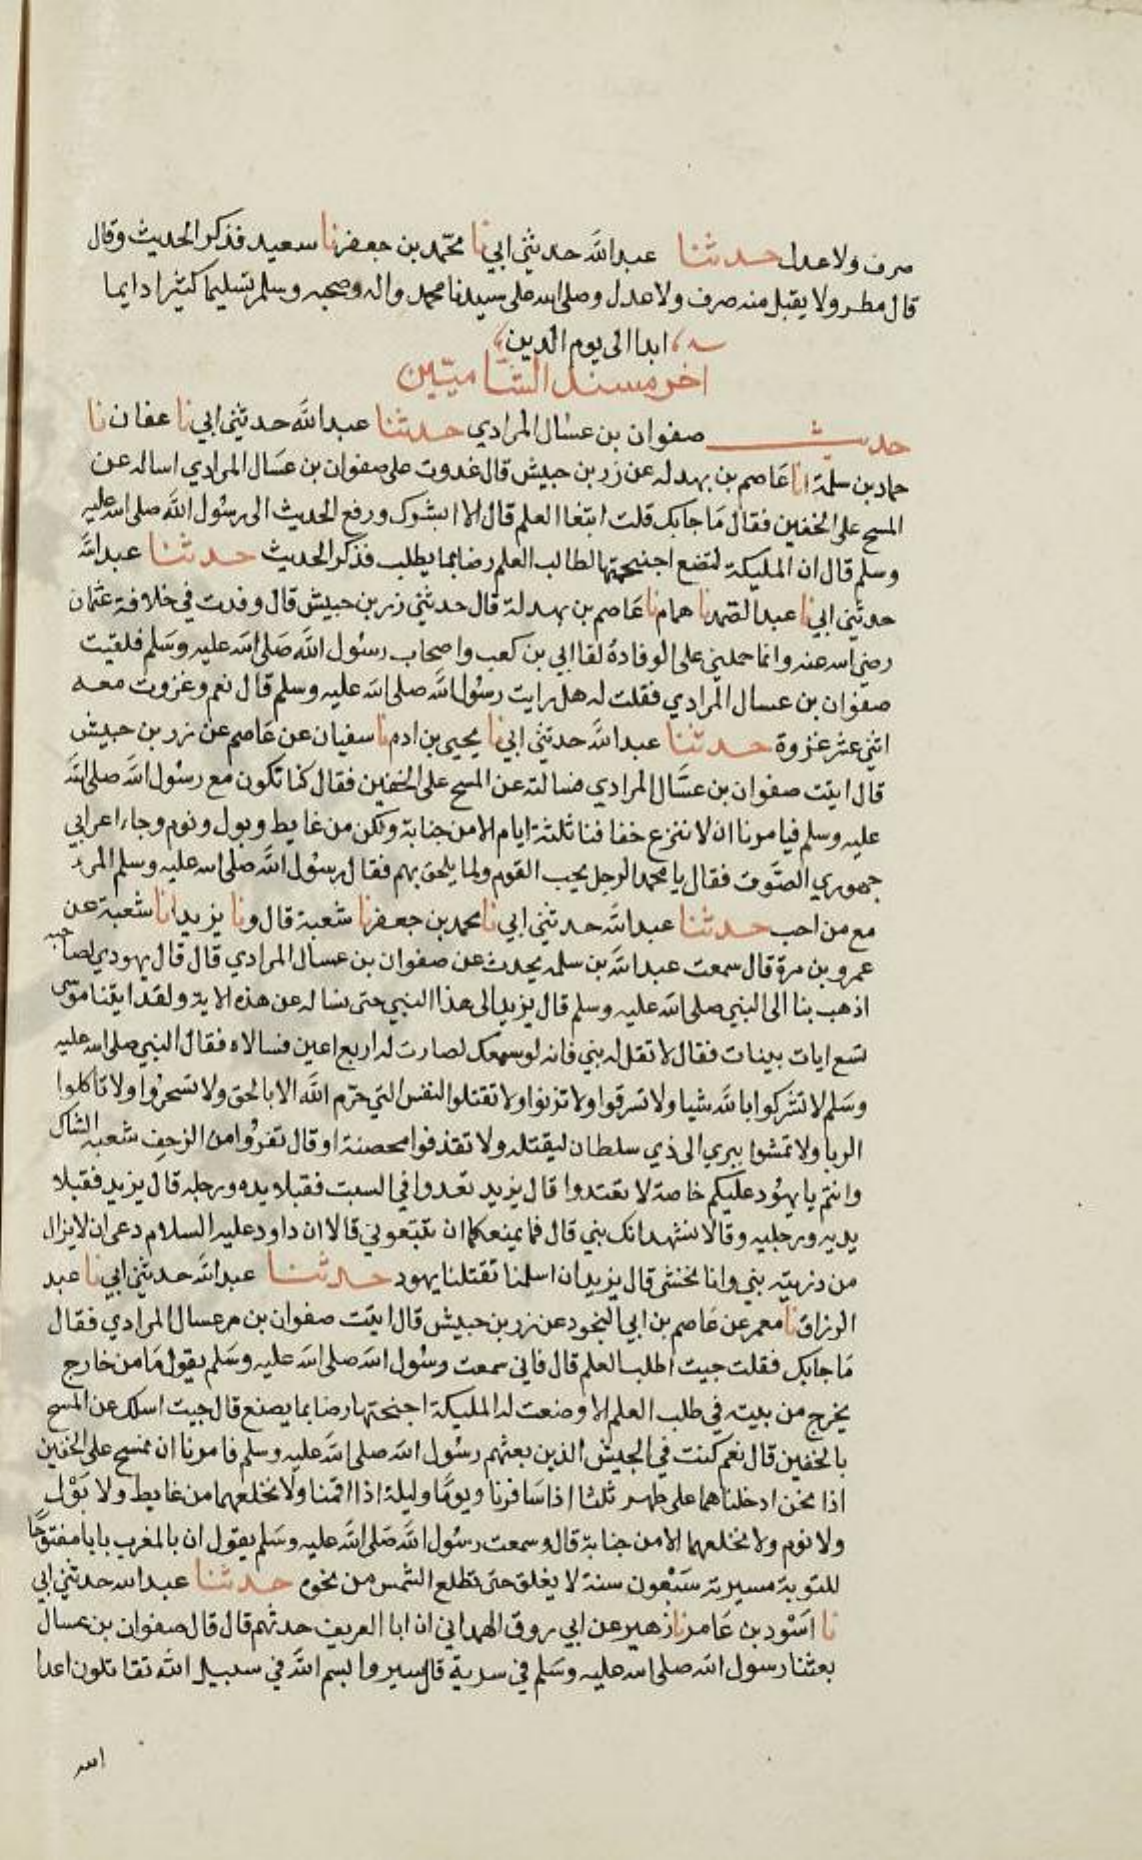 صرف ولا عدل حدثنا عبد الله حدثني ابي نا محمد بن جعفر نا سعيد فذكر الحديث وقال
قال مطر ولا يقبل منه صرف ولا عدل وصلى الله على سيدنا محمد واله وصحبه وسلم تسليما كثيرا دايما
ابدا الى يوم الدين
اخر مسند الشاميين
حديث صفوان بن عسال المرادي حدثنا عبد الله حدثني ابي نا عفان نا
حماد بن سلمة انا عاصم بن بهدله عن زر بن حبيش قال غدوت على صفوان بن عسال المرادي اساله عن
المسح على الخفين فقال ما جابك قلت ابتغا العلم قال الا ابشرك ورفع الحديث الى رسول الله صلى الله عليه
وسلم قال ان المليكة لتضع اجنحتها لطالب العلم رضا بما يطلب فذكر الحديث حدثنا عبد الله
حدثني ابي نا عبد الصمد نا همام نا عاصم بن بهدلة قال حدثني زر بن حبيش قال وفدت في خلافة عثمان
رضي الله عنه وانما حملني على الوفادة لقا ابي بن كعب واصحاب رسول الله صلى الله عليه وسلم فلقيت
صفوان بن عسال المرادي فقلت له هل رايت رسول الله صلى الله عليه وسلم قال نعم وغزوت معه
اثني عشر غزوة حدثنا عبد الله حدثني ابي نا يحيى بن ادم نا سفيان عن عاصم عن زر بن حبيش
قال اتيت صفوان بن عسال المرادي فسالته عن المسح على الخفين فقال كنا نكون مع رسول الله صلى الله
عليه وسلم فيامرنا ان لا ننزع خفافنا ثلثة ايام الا من جنابة ولكن من غايط وبول ونوم وجاء اعرابي
جهوري الصوت فقال يا محمد الرجل يحب القوم ولما يلحق بهم فقال رسول الله صلى الله عليه وسلم المرء
مع من احب حدثنا عبد الله حدثني ابي نا محمد بن جعفر نا شعبة قال ونا يزيد انا شعبة عن
عمرو بن مرة قال سمعت عبد الله بن سلمه يحدث عن صفوان بن عسال المرادي قال قال يهودي لصاحبه
اذهب بنا الى النبي صلى الله عليه وسلم قال يزيد الى هذا النبي حتى نساله عن هذه الاية ولقد اتينا موسى
تسع ايات بينات فقال لا تقل له نبي فانه لو سمعك لصارت له اربع اعين فسالاه فقال النبي صلى الله عليه
وسلم لا تشركوا بالله شيا ولا تسرقوا ولا تزنوا ولا تقتلوا النفس التي حرم الله الا بالحق ولا تسحروا ولا تاكلوا
الربا ولا تمشوا ببري الى ذي سلطان ليقتله ولا تقذفوا محصنة او قال تفروا من الزحف شعبة الشاك
وانتم يا يهود عليكم خاصة لا تعتدوا قال يزيد تعدوا في السبت فقبلا يده ورجله قال يزيد فقبلا
يديه ورجليه وقالا نشهد انك نبي قال فما يمنعكما ان تتبعوني قالا ان داود عليه السلام دعى ان لا يزال
من ذريته نبي وانا نخشى قال يزيد ان اسلمنا تقتلنا يهود حدثنا عبد الله حدثني ابي نا عبد
الرزاق نا معمر عن عاصم بن ابي النجود عن زر بن حبيش قال اتيت صفوان بن عسال المرادي فقال
ما جابك فقلت جيت اطلب العلم قال فاني سمعت رسول الله صلى الله عليه وسلم يقول ما من خارج
يخرج من بيته في طلب العلم الا وضعت له المليكة اجنحتها رضا بما يصنع قال جيت اسلك عن المسح
بالخفين قال نعم كنت في الجيش الذين بعثهم رسول الله صلى الله عليه وسلم فامرنا ان نمسح على الخفين
اذا نحن ادخلناهما على طهر ثلثا اذا سافرنا ويوما وليلة اذا اقمنا ولا نخلعهما من غايط ولا بول
ولا نوم ولا نخلعهما الا من جنابة قال وسمعت رسول الله صلى الله عليه وسلم يقول ان بالمغرب بابا مفتوحا
للتوبة مسيرته سبعون سنة لا يغلق حتى تطلع الشمس من نحوه حدثنا عبد الله حدثني ابي
نا اسود بن عامر نا زهير عن ابي روق الهمداني ان ابا العريف حدثهم قال قال صفوان بن عسال
بعثنا رسول الله صلى الله عليه وسلم في سرية قال سيروا بسم الله في سبيل الله تقاتلون اعدا
الله